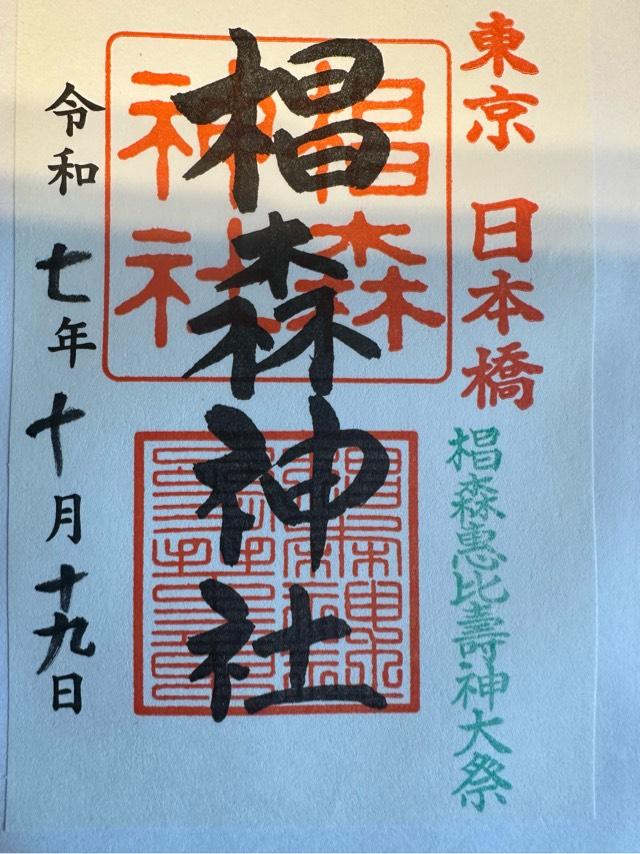 東京 日本橋
椙森惠比壽神大祭
椙森
神社
椙森神社
令和七年十月十九日